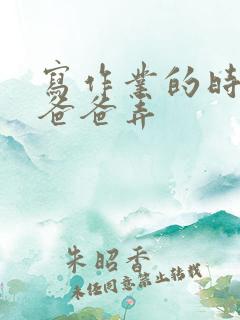 寫作業的時
爸爸弄
朱昭香
未經同意禁止轉載